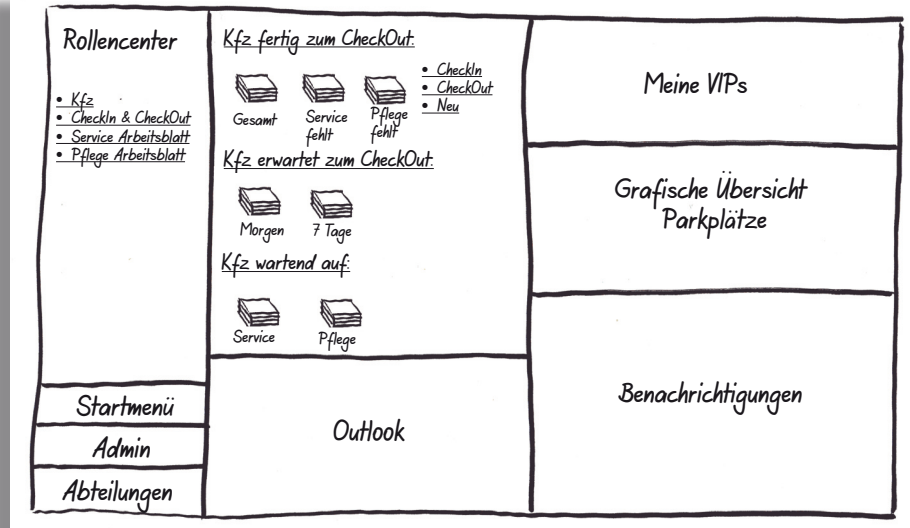 Rollencenter
• Kfz
• CheckIn & CheckOut
• Service Arbeitsblatt
• Pflege Arbeitsblatt
Startmenü
Admin
Abteilungen
Kfz fertig zum CheckOut:
Gesamt
Service
fehlt
Pflege
fehlt
• CheckIn
• CheckOut
• Neu
Kfz erwartet zum CheckOut:
Morgen
7 Tage
Kfz wartend auf:
Service
Pflege
Outlook
Meine VIPs
Grafische Übersicht
Parkplätze
Benachrichtigungen